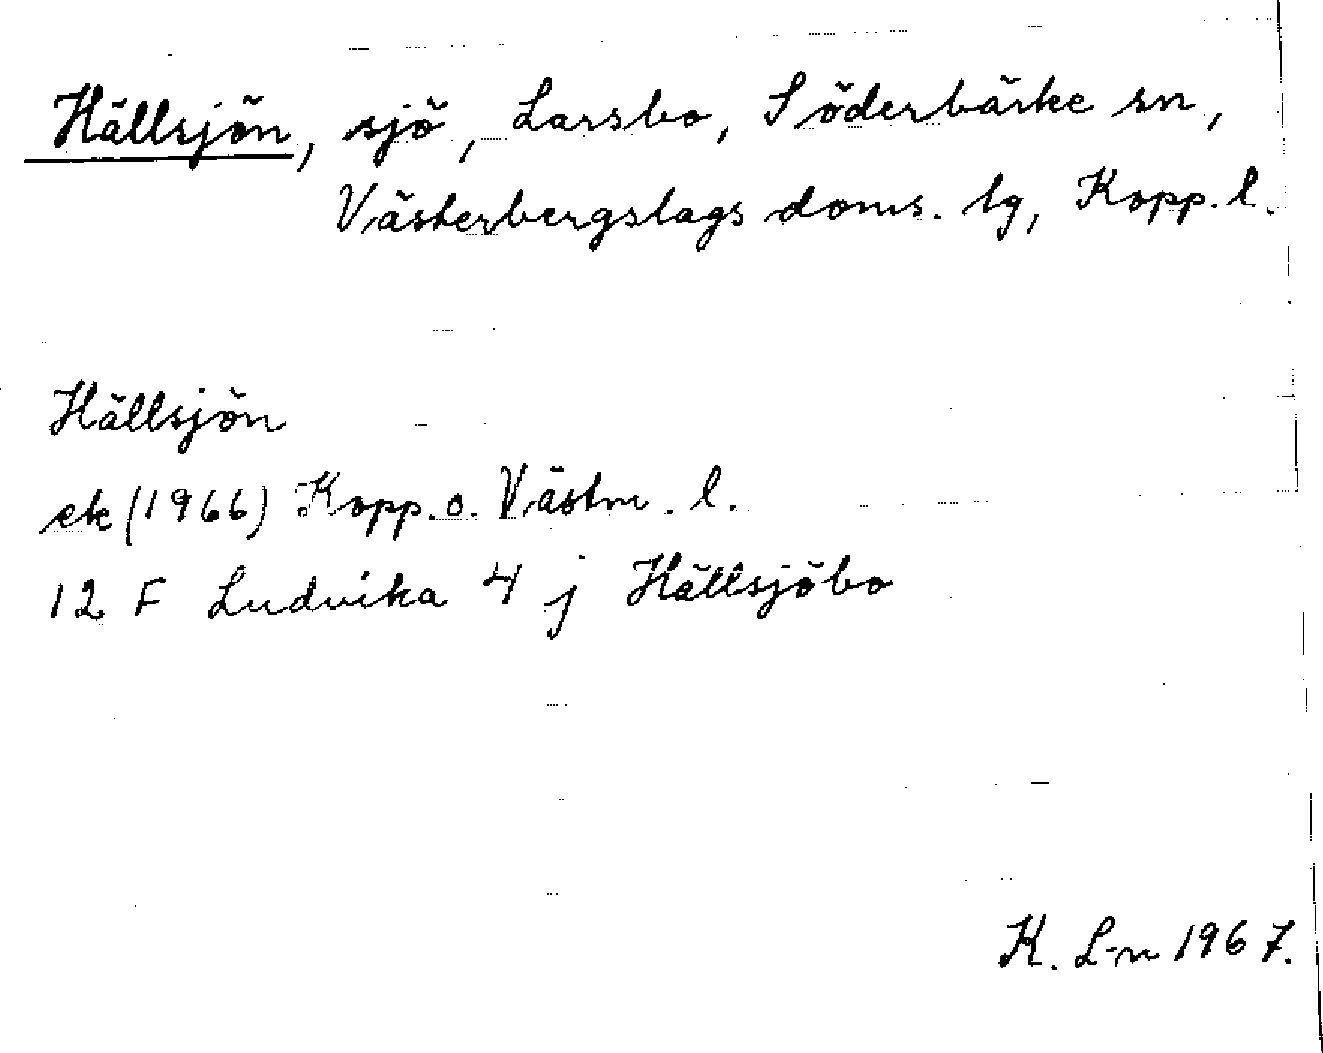 Hällsjön, sjö, Larsbo, Söderbärke sn,
Västerbergslags doms. lg, Kopp. l.
Hällsjön
ek (1966) Kopp. o. Västm. l.
12 F Ludvika 4 j Hällsjöbo
K. L-n 1967.